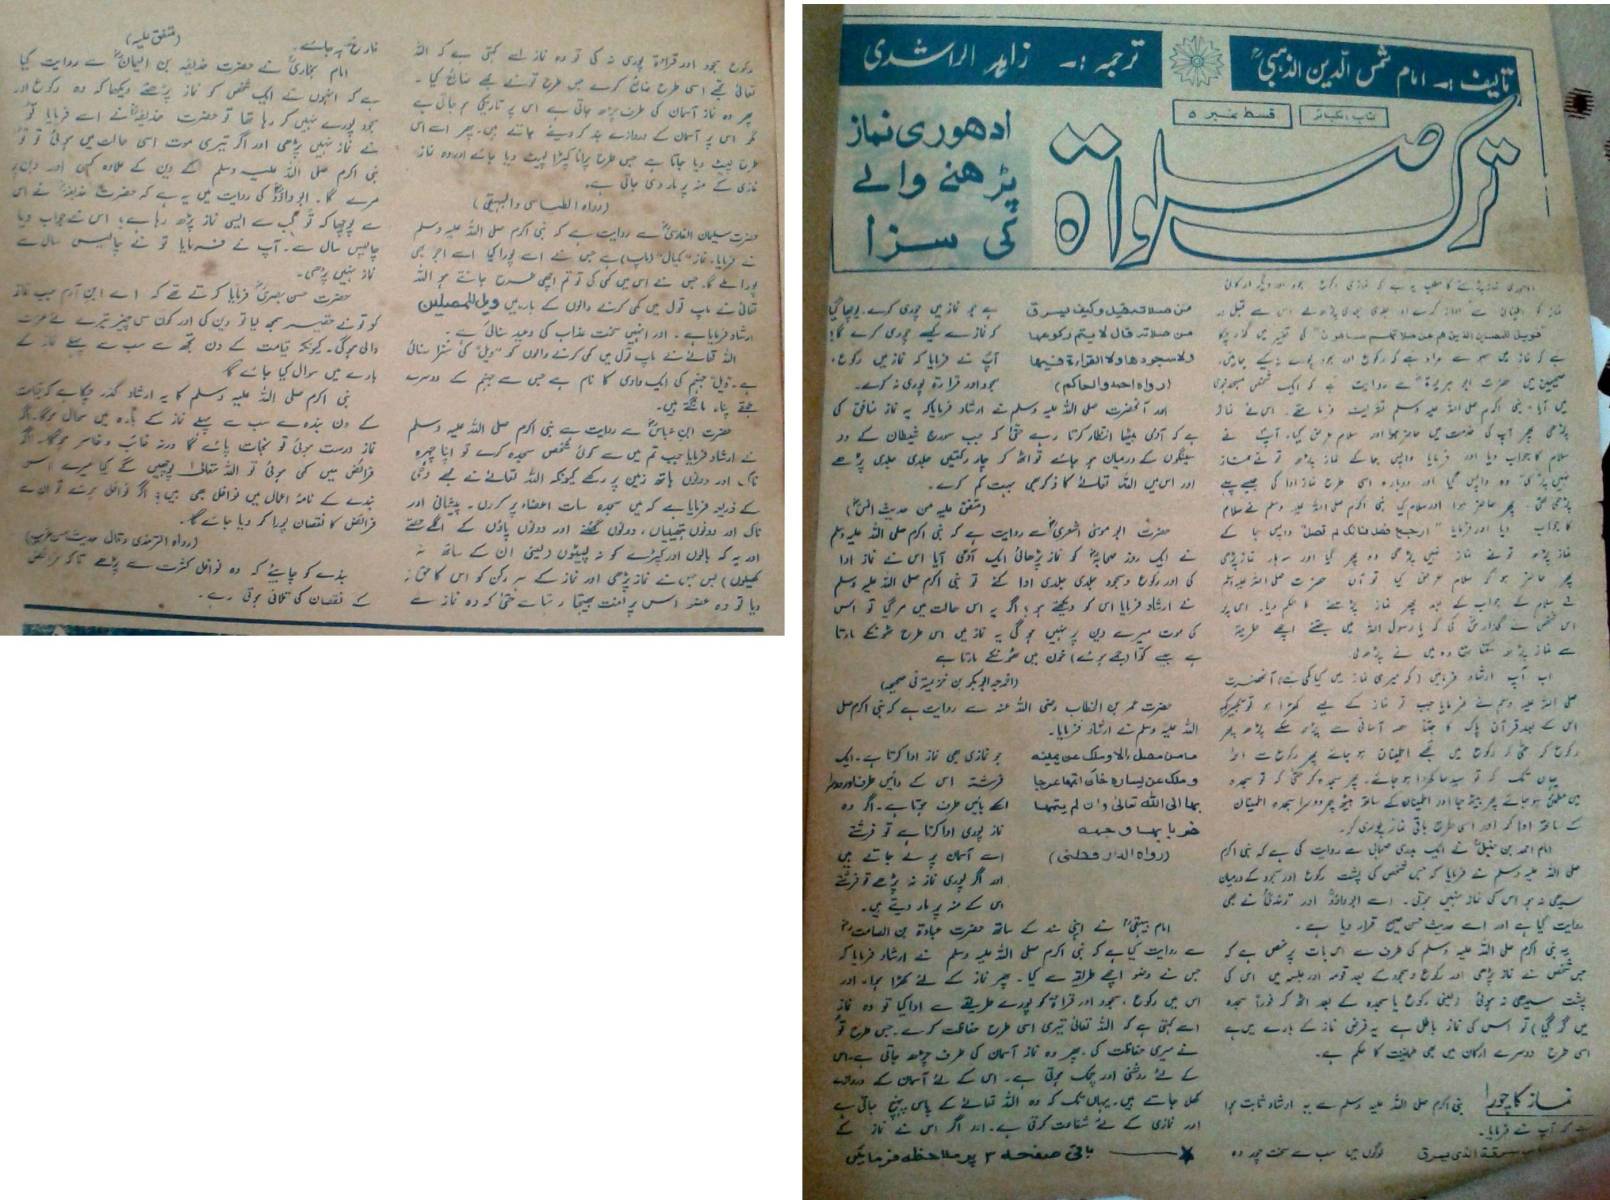 تالیف :۔ امام شمس الدین الذہبیؒ
ترجمہ :۔ زاہد الراشدی
کتاب الکبائر
قسط نمبر ۵
ترک صلوٰۃ
ادھوری نماز
پڑھنے والے
کی سزا
میں آیا۔ نبی اکرم صلی اللہ علیہ وسلم تشریف فرما تھے۔ اس نے نماز
پڑھی پھر آپ کی خدمت میں حاضر ہوا اور سلام عرض کیا۔ آپؐ نے
سلام کا جواب دیا اور فرمایا واپس جا کے نماز پڑھ تو نے نماز
نہیں پڑھی وہ واپس گیا اور دوبارہ اسی طرح نماز ادا کی جیسے پہلے
پڑھی تھی۔ پھر حاضر ہوا اور سلام کیا نبی اکرم صلی اللہ علیہ وسلم نے سلام
کا جواب دیا اور فرمایا "ارجع فصل فانک لم تصل" واپس جا کے
نماز پڑھ تو نے نماز نہیں پڑھی وہ پھر گیا اور سہ بار نماز پڑھی
اس شخص نے گذارش کی کہ یا رسول اللہ میں جتنے اچھے طریقہ
سے نماز پڑھ سکتا تھا وہ میں نے پڑھ لی
اب آپ ارشاد فرمائیں (کہ میری نماز میں کیا کمی ہے) آنحضرت
صلی اللہ علیہ وسلم نے فرمایا جب تو نماز کے لیے کھڑا ہو تو تکبیر کہہ
اس کے بعد قرآن پاک کا جتنا حصہ آسانی سے پڑھ سکے پڑھ پھر
رکوع کر حتیٰ کہ رکوع میں تجھے اطمینان ہو جائے پھر رکوع سے اٹھ
یہاں تک کہ تو سیدھا کھڑا ہو جائے۔ پھر سجدہ کر حتیٰ کہ تو سجدہ
میں مطمئن ہو جائے پھر بیٹھ جا اور اطمینان کے ساتھ بیٹھ پھر دوسرا سجدہ اطمینان
کے ساتھ ادا کر اور اسی طرح باقی نماز پوری کر۔
امام احمد بن حنبلؒ نے ایک بدری صحابی سے روایت کی ہے کہ نبی اکرم
صلی اللہ علیہ وسلم نے فرمایا کہ جس شخص کی پشت رکوع اور سجود کے درمیان
سیدھی نہ ہو اس کی نماز نہیں ہوتی۔ اسے ابوداؤدؒ اور ترمذیؒ نے بھی
روایت کیا ہے اور اسے حدیث حسن صحیح قرار دیا ہے۔
یہ نبی اکرم صلی اللہ علیہ وسلم کی طرف سے اس بات پر نص ہے کہ
جس شخص نے نماز پڑھی اور رکوع و سجود کے بعد قومہ اور جلسہ میں اس کی
پشت سیدھی نہ ہوئی (یعنی رکوع یا سجدہ کے بعد اٹھ کر فوراً سجدہ
میں گر گیا) تو اس کی نماز باطل ہے یہ فرض نماز کے بارے میں ہے
اسی طرح دوسرے ارکان میں بھی طمانیت کا حکم ہے۔
نماز کا چور! نبی اکرم صلی اللہ علیہ وسلم سے یہ ارشاد ثابت ہوا
ہے کہ آپ نے فرمایا۔
سرقة الذی یسرق لوگوں میں سب سے سخت چور وہ
من صلاتہ قیل وکیف یسرق
من صلاتہ قال لا یتم رکوعها
ولا سجودها ولا القراءة فیها
(رواہ احمد والحاکم)
ہے جو نماز میں چوری کرے۔ پوچھا گیا
کہ نماز سے کیسے چوری کرے گا؟
آپؐ نے فرمایا کہ نماز میں رکوع،
سجود اور قراءۃ پوری نہ کرے۔
اور آنحضرت صلی اللہ علیہ وسلم نے ارشاد فرمایا کہ یہ نماز منافق کی
ہے کہ آدمی بیٹھا انتظار کرتا رہے حتیٰ کہ جب سورج شیطان کے دو
سینگوں کے درمیان ہو جائے تو اٹھ کر چار رکعتیں جلدی جلدی پڑھے
اور اس میں اللہ تعالےٰ کا ذکر بھی بہت کم کرے۔
(متفق علیہ من حدیث انسؓ)
حضرت ابو موسیٰ اشعریؓ سے روایت ہے کہ نبی اکرم صلی اللہ علیہ وسلم
نے ایک روز صحابہؓ کو نماز پڑھائی ایک آدمی آیا اس نے نماز ادا
کی اور رکوع و سجود جلدی جلدی ادا کئے تو نبی اکرم صلی اللہ علیہ وسلم
نے ارشاد فرمایا اس کو دیکھتے ہو؟ اگر یہ اس حالت میں مر گیا تو اس
کی موت میرے دین پر نہیں ہو گی یہ نماز میں اس طرح ٹھونگے مارتا
ہے جیسے کوّا (جمے ہوئے) خون میں ٹھونگے مارتا ہے
(اخرجہ ابوبکر بن خزیمۃ فی صحیحہ)
حضرت عمر بن الخطاب رضی اللہ عنہ سے روایت ہے کہ نبی اکرم صلی
اللہ علیہ وسلم نے ارشاد فرمایا۔
ما من مصل الا وملک عن یمینہ
وملک عن یسارہ فان اتمها عرجا
بها الی اللہ تعالیٰ وان لم یتمها
ضربا بها وجهہ
(رواہ الدار قطنی)
جو نمازی بھی نماز ادا کرتا ہے۔ ایک
فرشتہ اس کے دائیں طرف اور دوسرا
اسکے بائیں طرف ہوتا ہے۔ اگر وہ
نماز پوری ادا کرتا ہے تو فرشتے
اسے آسمان پر لے جاتے ہیں
اور اگر پوری نماز نہ پڑھے تو فرشتے
اسی کے منہ پر مار دیتے ہیں۔
امام بیہقیؒ نے اپنی سند کے ساتھ حضرت عبادۃ بن الصامتؓ
سے روایت کیا ہے کہ نبی اکرم صلی اللہ علیہ وسلم نے ارشاد فرمایا کہ
جس نے وضو اچھے طریقے سے کیا۔ پھر نماز کے لئے کھڑا ہوا۔ اور
اس میں رکوع، سجود اور قراءۃ کو پورے طریقے سے ادا کیا تو وہ نماز
اسے کہتی ہے کہ اللہ تعالیٰ تیری اسی طرح حفاظت کرے۔ جس طرح تو
نے میری حفاظت کی۔ پھر وہ نماز آسمان کی طرف چڑھ جاتی ہے۔ اس
کے لئے روشنی اور چمک ہوتی ہے۔ اس کے لئے آسمان کے دروازے
کھل جاتے ہیں۔ یہاں تک کہ وہ اللہ تعالےٰ کے پاس پہنچ جاتی ہے
اور نمازی کے لئے شفاعت کرتی ہے۔ اور اگر اس نے نماز کے
باقی صفحہ ۳ پر ملاحظہ فرمائیں
رکوع سجود اور قراءۃ پوری نہ کی تو وہ نماز اسے کہتی ہے کہ اللہ
تعالیٰ تجھے اسی طرح ضائع کرے جس طرح تو نے مجھے ضائع کیا۔
پھر وہ نماز آسمان کی طرف چڑھ جاتی ہے اس پر تاریکی ہو جاتی ہے
اس پر آسمان کے دروازے بند کر دیئے جاتے ہیں۔ پھر اسے اس
طرح لپیٹ دیا جاتا ہے جس طرح پرانا کپڑا لپیٹ دیا جائے اور وہ نماز
نمازی کے منہ پر مار دی جاتی ہے۔
(رواہ الطیالسی والبیہقی)
حضرت سلیمان الفارسیؓ سے روایت ہے کہ نبی اکرم صلی اللہ علیہ وسلم
نے فرمایا۔ نماز "کیال" (ماپ) ہے جس نے اسے پورا کیا اسے اجر بھی
پورا ملے گا۔ جس نے اس میں کمی کی تو تم اچھی طرح جانتے ہو اللہ
تعالیٰ نے ماپ تول میں کمی کرنے والوں کے بارے میں ویل للمصلین
ارشاد فرمایا ہے۔ اور انہیں سخت عذاب کی وعید سنائی ہے۔
اللہ تعالےٰ نے ماپ تول میں کمی کرنے والوں کو "ویل" کی سزا سنائی
ہے۔ ویل جہنم کی ایک وادی کا نام ہے جس سے جہنم کے دوسرے
حصے پناہ مانگتے ہیں۔
حضرت ابن عباسؓ سے روایت ہے نبی اکرم صلی اللہ علیہ وسلم
نے ارشاد فرمایا جب تم میں سے کوئی شخص سجدہ کرے تو اپنا چہرہ
ناک اور دونوں ہاتھ زمین پر رکھے کیونکہ اللہ تعالےٰ نے مجھے وحی
کے ذریعہ فرمایا ہے کہ میں سجدہ سات اعضاء پر کروں۔ پیشانی اور
ناک اور دونوں ہتھیلیاں، دونوں گھٹنے اور دونوں پاؤں کے اگلے حصے
اور یہ کہ بالوں اور کپڑے کو نہ لپیٹوں (یعنی ان کے ساتھ نہ
کھیلوں) پس جس نے نماز پڑھی اور نماز کے ہر رکن کو اس کا حق نہ
دیا تو وہ عضو اس پر لعنت بھیجتا رہتا ہے حتیٰ کہ وہ نماز سے
فارغ ہو جائے۔
(متفق علیہ)
امام بخاریؒ نے حضرت حذیفہ بن الیمانؓ سے روایت کیا
ہے کہ انہوں نے ایک شخص کو نماز پڑھتے دیکھا کہ وہ رکوع اور
سجود پورے نہیں کر رہا تھا تو حضرت حذیفہؓ نے اسے فرمایا تو
نے نماز نہیں پڑھی اور اگر تیری موت اسی حالت میں ہوئی تو تو
نبی اکرم صلی اللہ علیہ وسلم کے دین کے علاوہ کسی اور دین پر
مرے گا۔ ابو داؤدؒ کی روایت میں یہ ہے کہ حضرت حذیفہؓ نے اس
سے پوچھا کہ تو کب سے ایسی نماز پڑھ رہا ہے؟ اس نے جواب دیا
چالیس سال سے۔ آپ نے فرمایا تو نے چالیس سال سے
نماز نہیں پڑھی۔
حضرت حسن بصریؒ فرمایا کرتے تھے کہ اے ابن آدم جب نماز
کو تو نے حقیر سمجھ لیا تو دین کی اور کون سی چیز تیرے لئے عزت
والی ہوگی۔ کیونکہ قیامت کے دن تجھ سے سب سے پہلے نماز کے
بارے میں سوال کیا جائے گا
نبی اکرم صلی اللہ علیہ وسلم کا یہ ارشاد گذر چکا ہے کہ قیامت
کے دن بندہ سے سب سے پہلے نماز کے بارہ میں سوال ہوگا۔ اگر
نماز درست ہوئی تو نجات پائے گا ورنہ خائب و خاسر ہوگا۔ اگر
فرائض میں کمی ہوئی تو اللہ تعالیٰ پوچھیں گے کیا میرے اس
بندے کے نامۂ اعمال میں نوافل بھی ہیں؟ اگر نوافل ہوئے تو ان سے
فرائض کا نقصان پورا کر دیا جائے گا۔
(رواہ الترمذی وقال حدیث حسن غریب)
بندے کو چاہیئے کہ وہ نوافل کثرت سے پڑھے تاکہ فرائض
کے نقصان کی تلافی ہوتی رہے۔